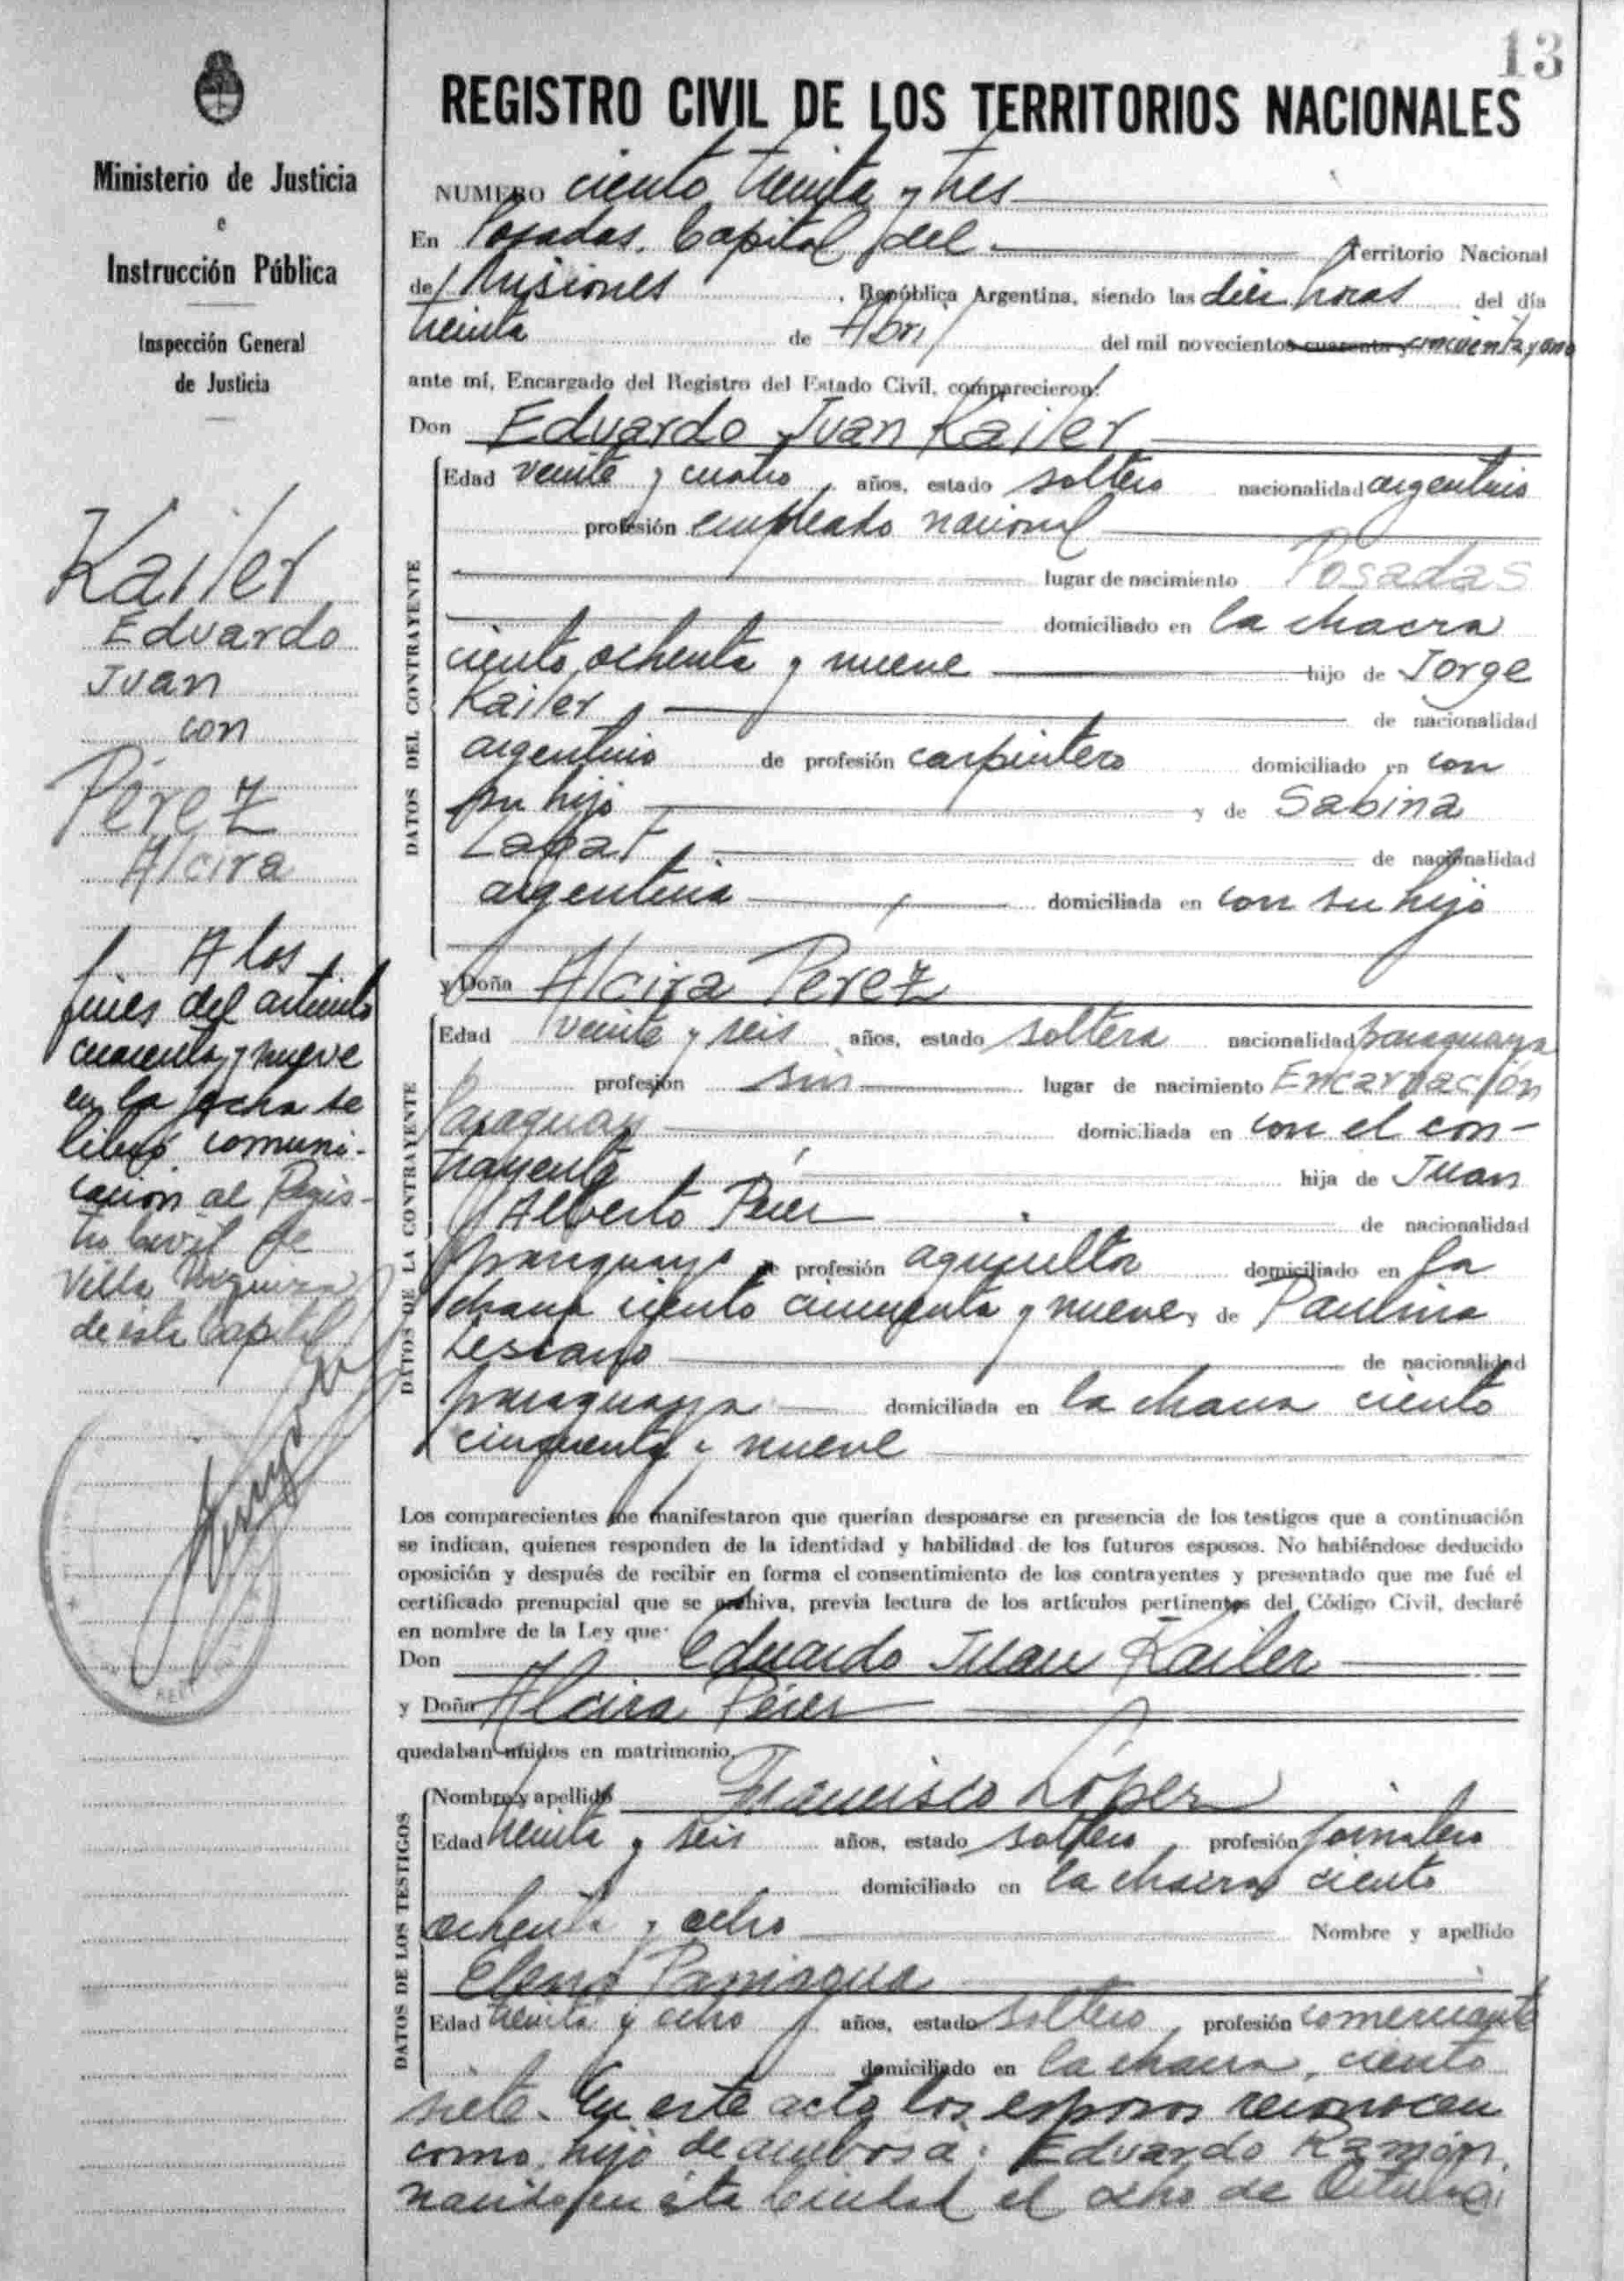 13
Ministerio de Justicia
e
Instrucción Pública
Inspección General
de Justicia
Kailer
Eduardo
Juan
con
Pérez
Alcira
A los
fines del artículo
cuarenta y nueve
en la fecha se
libró comuni-
cación al Regis-
tro Civil de
Villa
de esta Capital
REGISTRO CIVIL DE LOS TERRITORIOS NACIONALES
NUMERO ciento treinta y tres
En Posadas, Capital del Territorio Nacional
de Misiones, República Argentina, siendo las diez horas del día
treinta de Abril del mil novecientos cuarenta y cincuenta y uno
ante mí, Encargado del Registro del Estado Civil, comparecieron:
Don Eduardo Juan Kailer
DATOS DEL CONTRAYENTE
Edad veinte y cuatro años, estado soltero nacionalidad argentino
profesión empleado nacional
lugar de nacimiento Posadas
domiciliado en la chacra
ciento ochenta y nueve hijo de Jorge
Kailer de nacionalidad
argentino de profesión carpintero domiciliado en con
su hijo y de Sabina
de nacionalidad
argentina domiciliada en con su hijo
y Doña Alcira Pérez
DATOS DE LA CONTRAYENTE
Edad veinte y seis años, estado soltera nacionalidad paraguaya
profesión sin lugar de nacimiento Encarnación
Paraguay domiciliada en con el con-
trayente hija de Juan
Alberto Pérez de nacionalidad
paraguayo de profesión agricultor domiciliado en la
chacra ciento cincuenta y nueve y de Paulina
Lescano de nacionalidad
paraguaya domiciliada en la chacra ciento
cincuenta y nueve
Los comparecientes me manifestaron que querían desposarse en presencia de los testigos que a continuación
se indican, quienes responden de la identidad y habilidad de los futuros esposos. No habiéndose deducido
oposición y después de recibir en forma el consentimiento de los contrayentes y presentado que me fué el
certificado prenupcial que se archiva, previa lectura de los artículos pertinentes del Código Civil, declaré
en nombre de la Ley que:
Don Eduardo Juan Kailer
y Doña Alcira Pérez
quedaban unidos en matrimonio.
DATOS DE LOS TESTIGOS
Nombre y apellido Francisco López
Edad treinta y seis años, estado soltero profesión jornalero
domiciliado en la chacra ciento
ochenta y ocho Nombre y apellido
Paniagua
Edad treinta y ocho años, estado soltero, profesión comerciante
domiciliado en la chacra, ciento
siete. En este acto los esposos reconocen
como hijo de ambos a: Eduardo Ramón,
nacido en esta Ciudad el ocho de Octubre